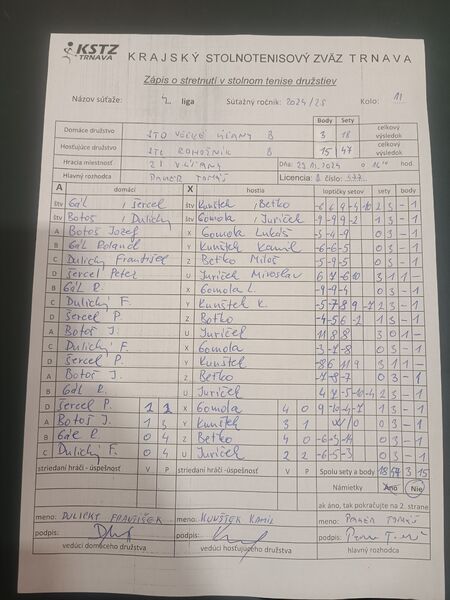 KSTZ
TRNAVA
KRAJSKÝ STOLNOTENISOVÝ ZVÄZ TRNAVA
Zápis o stretnutí v stolnom tenise družstiev
Názov súťaže: liga Súťažný ročník: 2024/25 Kolo: 11
Body Sety
Domáce družstvo STO VEĽKÉ ÚĽANY B 3 18 celkový výsledok
Hosťujúce družstvo STK B 15 47 celkový výsledok
Hracia miestnosť ZŠ V. ÚĽANY Dňa: o hod.
Hlavný rozhodca PAVER TOMÁŠ Licencia: číslo:
A domáci X hostia loptičky setov sety body
štv Gál , Šercel štv Kunštek , Beťko 2 3 - 1
štv Botoš , Dulický štv Gomola , Juríček -9 -9 9 -2 1 3 - 1
A Botoš Jozef X Gomola Lukáš -3 -4 -9 0 3 - 1
B Gál Roland Y Kunštek Kamil -6 -6 -5 0 3 - 1
C Dulický František Z Beťko Miloš -5 -9 -5 0 3 - 1
D Šercel Peter U Juríček Miroslav 6 7 -6 10 3 1 1 -
B Gál R. X Gomola L. -9 -9 -4 0 3 - 1
C Dulický F. Y Kunštek K. -5 -7 8 9 -7 2 3 - 1
D Šercel P. Z Beťko -4 -5 6 -2 1 3 - 1
A Botoš J. U Juríček 11 8 8 3 0 1 -
C Dulický F. X Gomola -3 -7 -8 0 3 - 1
D Šercel P. Y Kunštek -8 6 11 9 3 1 1 -
A Botoš J. Z Beťko -7 -8 -7 0 3 - 1
B Gál R. U Juríček 4 7 -5 -10 -4 2 3 - 1
D Šercel P. X Gomola 4 0 9 -10 -4 -7 1 3 - 1
A Botoš J. 1 3 Y Kunštek 3 1 W/O 0 3 - 1
B Gál R. 0 4 Z Beťko 4 0 0 3 - 1
C Dulický F. 0 4 U Juríček 2 2 -6 -5 -3 0 3 - 1
striedaní hráči - úspešnosť V P striedaní hráči - úspešnosť V P Spolu sety a body 18 47 3 15
Námietky Áno Nie
ak áno, tak pokračujte na 2. strane
meno: DULICKÝ FRANTIŠEK meno: KUNŠTEK KAMIL meno: PAVER TOMÁŠ
podpis: podpis: podpis:
vedúci domáceho družstva vedúci hosťujúceho družstva hlavný rozhodca